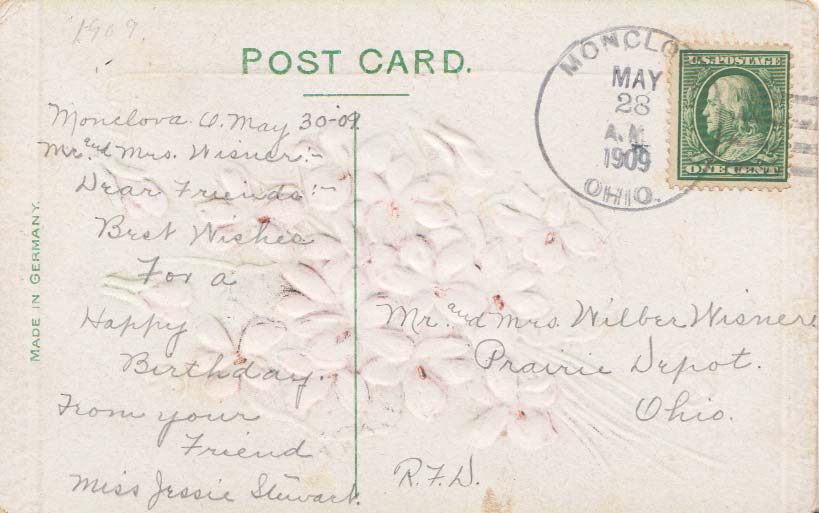 1909.
POST CARD.
MONCLO
MAY
28
A.M.
1909
OHIO.
U.S. POSTAGE
ONE CENT
MADE IN GERMANY.
Monclova. O. May 30-09.
Mr. and Mrs. Wisner:-
Dear Friends:-
Best Wishes
For a
Happy
Birthday.
From your
Friend
Miss Jessie Stewart.
Mr. and Mrs. Wilber Wisner
Prairie Depot.
Ohio.
R.F.D.